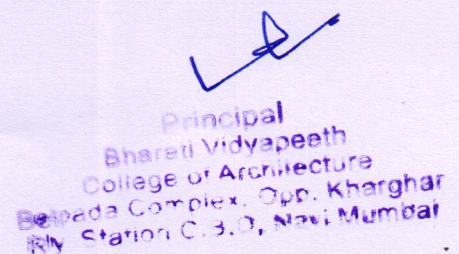 Principal
Bharati Vidyapeeth
College of Architecture
Belpada Complex, Opp. Kharghar
Rly Station C.B.D, Navi Mumbai